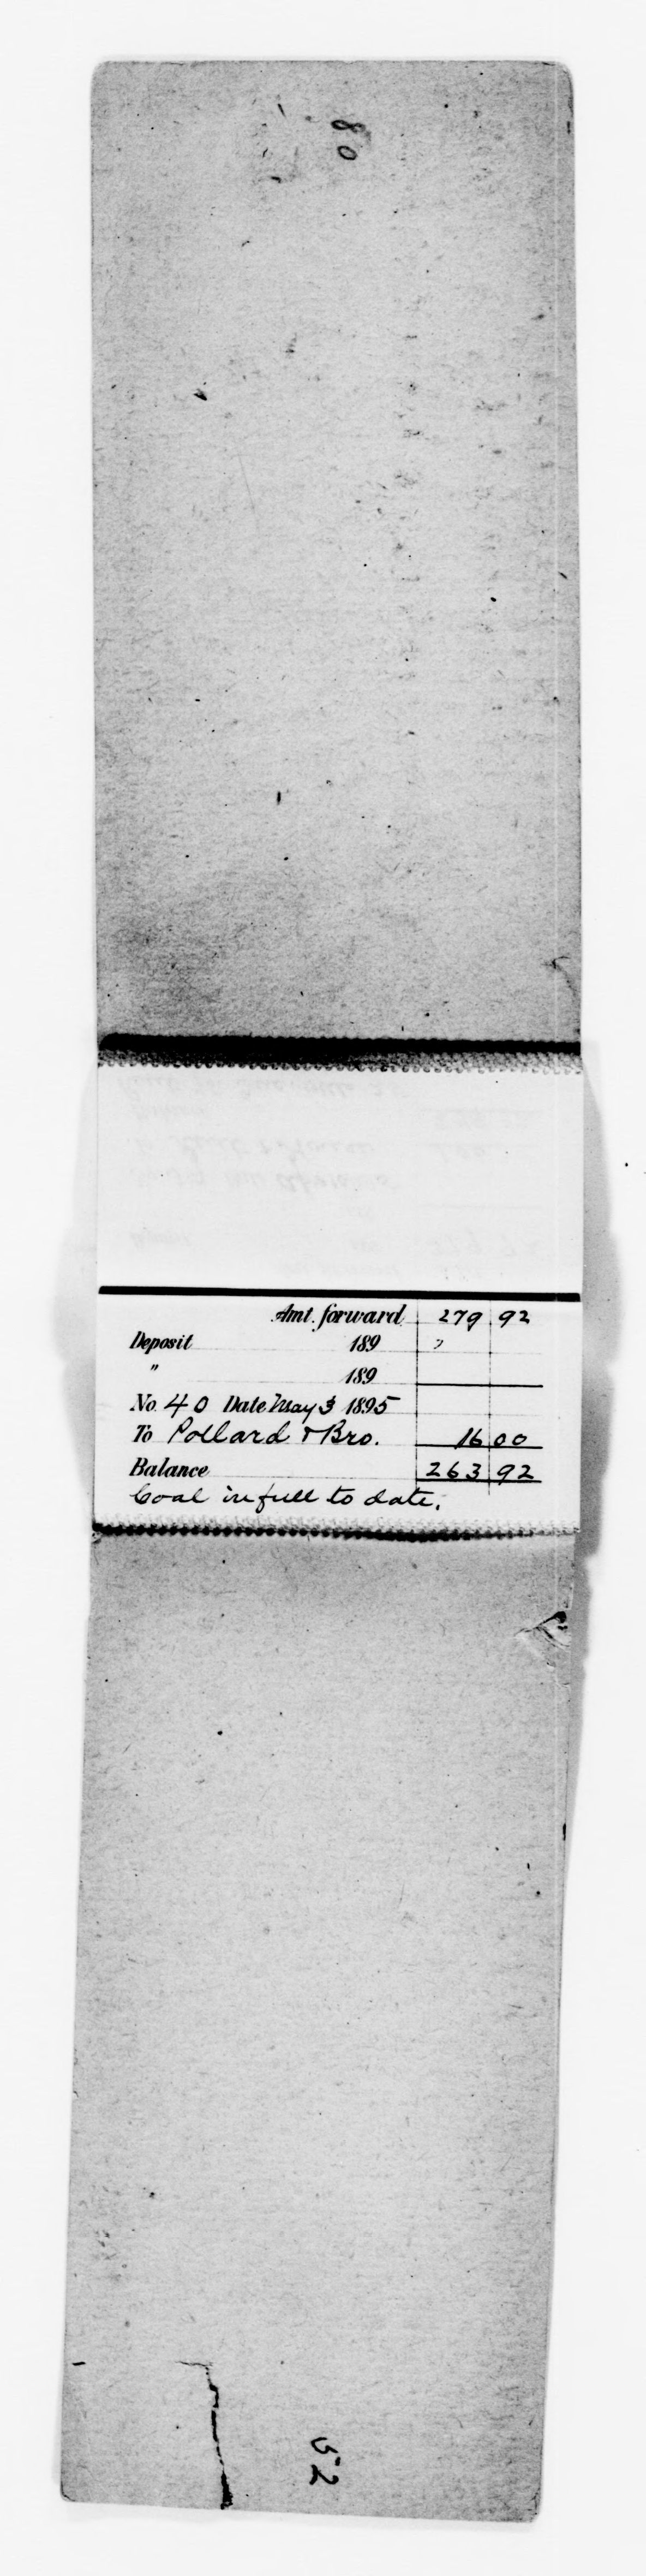 80
Amt. forward 279 92
Deposit 189
" 189
No. 40 Date May 3 1895
To Pollard & Bro. 16 00
Balance 263 92
Coal in full to date.
52